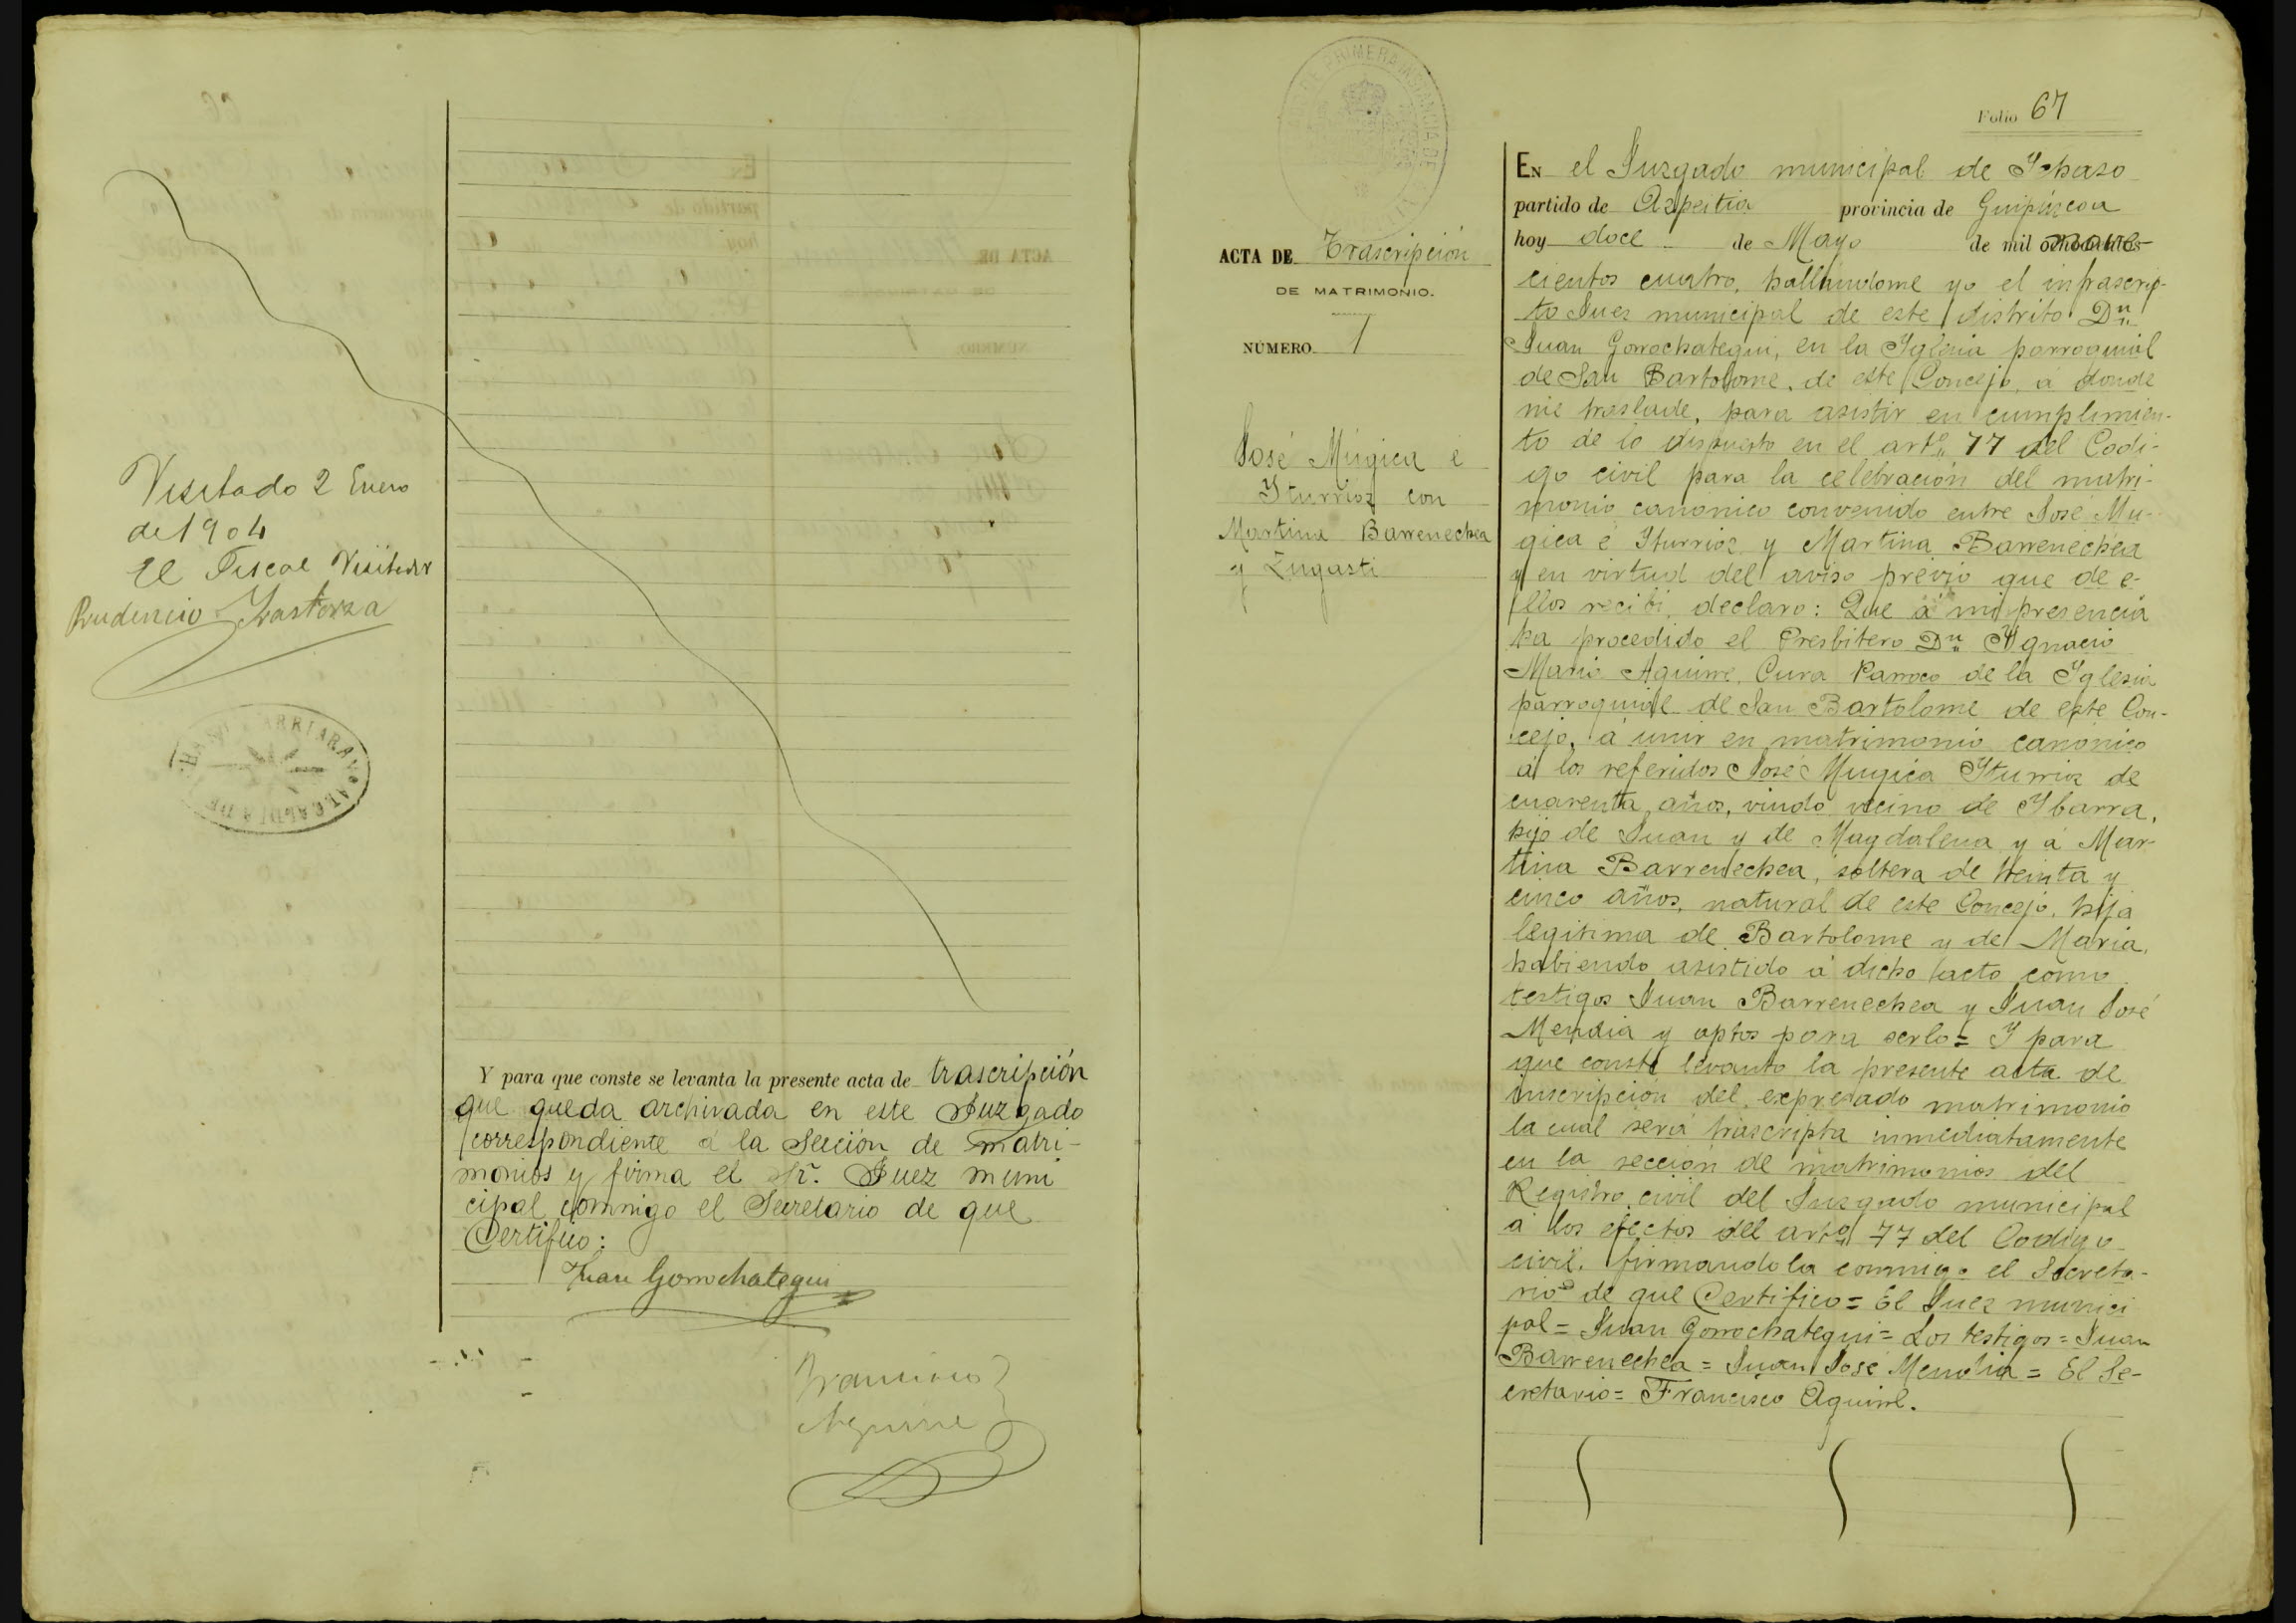 Visitado 2 Enero
de 1904
El Fiscal Visitador
Prudencio
Y para que conste se levanta la presente acta de trascripción
que queda archivada en este Juzgado
correspondiente á la Sección de matri-
monios y firma el Sr. Juez muni
cipal conmigo el Secretario de que
Certifico:
Juan Gorrochategui
Francisco
Aguirre
Folio 67
ACTA DE Trascripción
DE MATRIMONIO.
NÚMERO 1
José Múgica é
Yturrioz con
Martina Barrenechea
y Zugasti
EN el Juzgado municipal de Ychaso
partido de Azpeitia provincia de Guipúzcoa
hoy doce de Mayo de mil nove-
cientos cuatro, hallandome yo el infrascrip-
to Juez municipal de este distrito Dn
Juan Gorrochategui, en la Yglesia parroquial
de San Bartolome, de este Concejo, á donde
me traslade, para asistir en cumplimien-
to de lo dispuesto en el arto 77 del Codi-
go civil para la celebración del matri-
monio canónico convenido entre José Mu-
gica é Yturrioz y Martina Barrenechea
y en virtud del aviso previo que de e-
llos recibi, declaro: Que á mi presencia
ha procedido el Presbitero Dn Ygnacio
Maria Aguirre, Cura Parroco de la Yglesia
parroquial de San Bartolome de este Con-
cejo, á unir en matrimonio canonico
á los referidos José Mugica Yturrioz de
cuarenta años, viudo vecino de Ybarra,
hijo de Juan y de Magdalena y á Mar-
tina Barrenechea, soltera de treinta y
cinco años, natural de este Concejo, hija
legitima de Bartolome y de Maria,
habiendo asistido á dicho acto como
testigos Juan Barrenechea y Juan José
Mendia y aptos para serlo = Y para
que conste levanto la presente acta de
inscripción del expresado matrimonio
la cual será trascripta inmediatamente
en la sección de matrimonios del
Registro civil del Juzgado municipal
á los efectos del arto 77 del Codigo
civil, firmandola conmigo el Secreta-
rio de que Certifico = El Juez munici
pal = Juan Gorrochategui = Los testigos = Juan
Barrenechea = Juan José Mendia = El Se-
cretario = Francisco Aguirre.